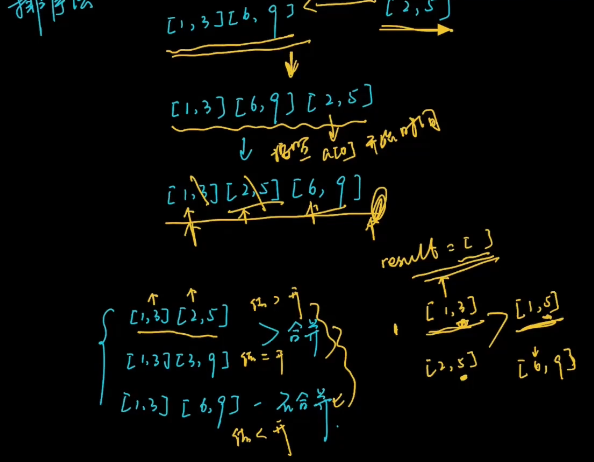 排序法
[1,3][6,9] [2,5]
[1,3][6,9][2,5]
按照 a[0] 开始时间
[1,3][2,5][6,9]
result = [ ]
[1,3][2,5] > 合并
[1,3][3,9] =
[1,3][6,9] - 不合并
<
[1,3] [1,5]
[2,5] [6,9]